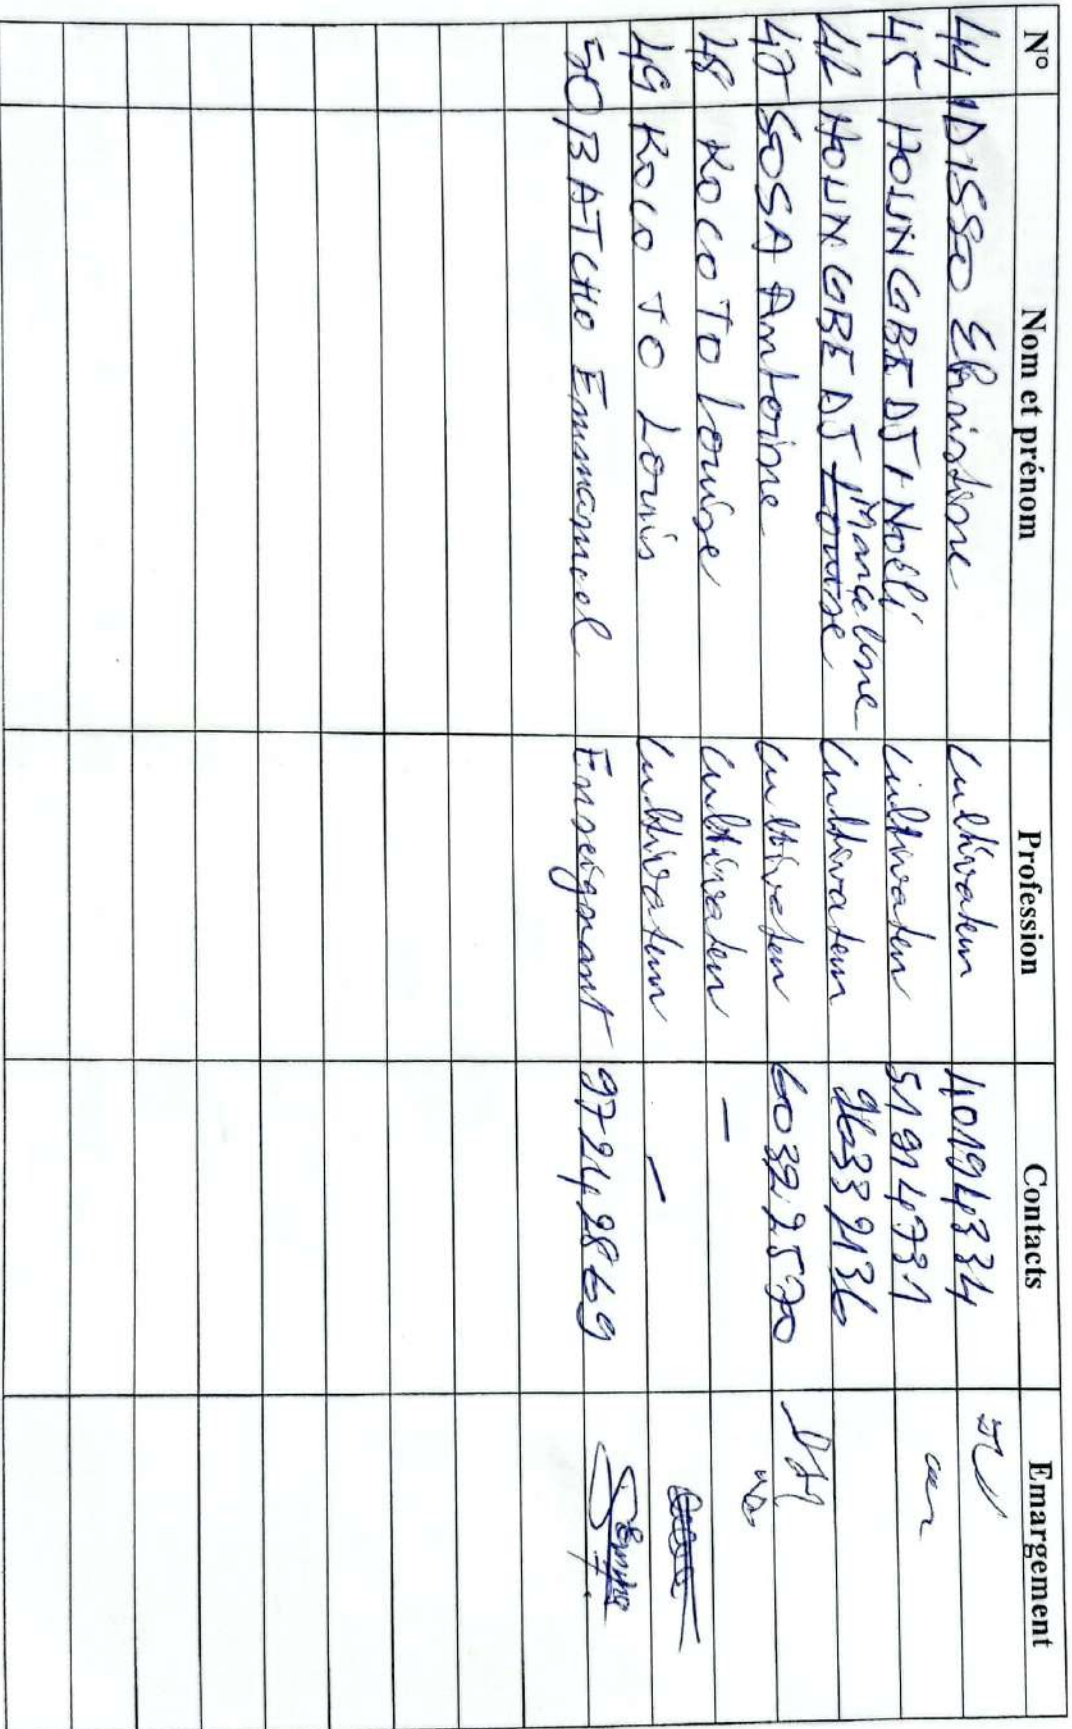 N° Nom et prénom Profession Contacts Emargement
44 ADISSO Christine cultivateur 40194334
45 HOUNGBEDJI Noëli cultivateur 51914731
46 HOUNGBEDJI Marceline cultivateur 96332136
47 SOSA Antoine cultivateur 60322570
48 KOCOTO Louise cultivateur –
49 KOCOTO Louis cultivateur –
50 BATCHO Emmanuel Enseignant 97242869